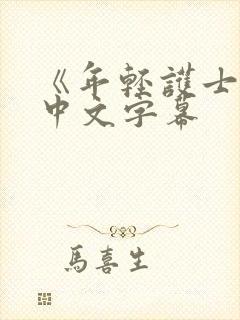 《年輕護士
中文字幕
馬喜生